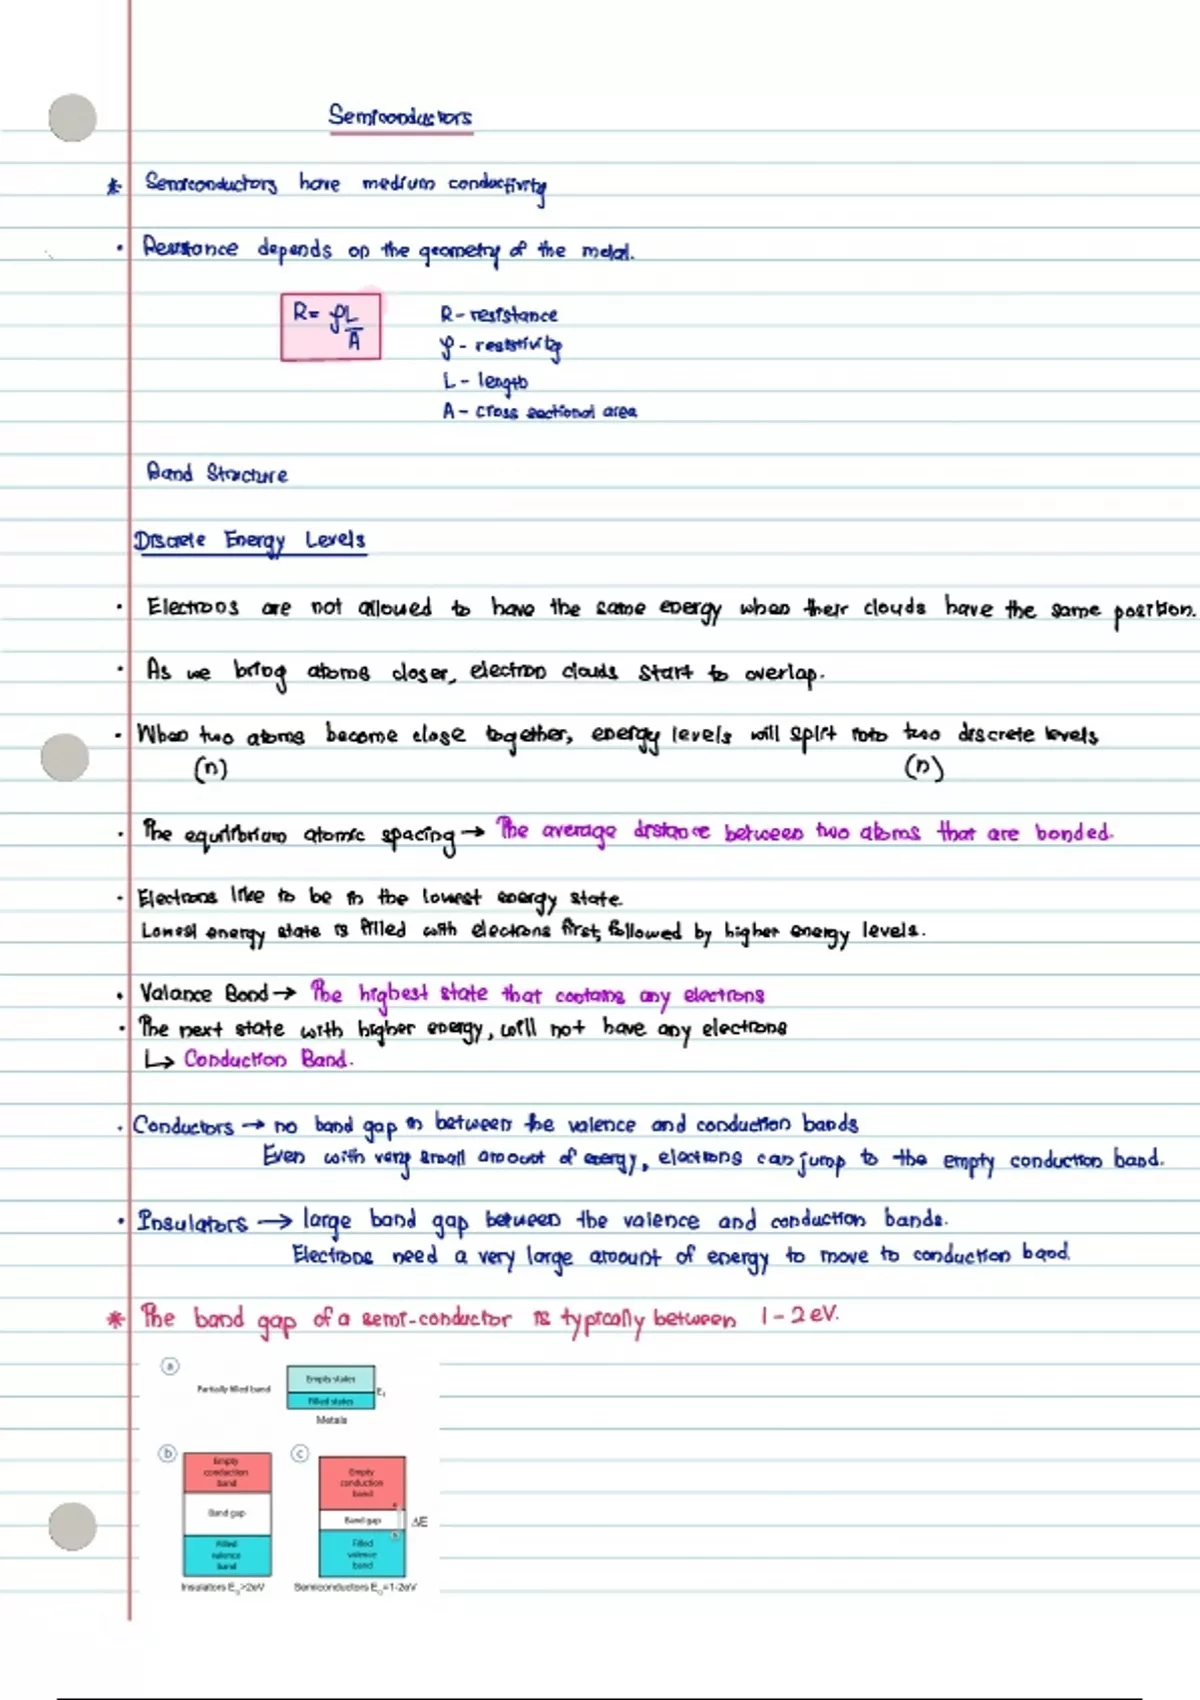 Semiconductors
* Semiconductors have medium conductivity
• Resistance depends on the geometry of the metal.
R = ρL/A
R - resistance
ρ - resistivity
L - length
A - cross sectional area
Band Structure
Discrete Energy Levels
• Electrons are not allowed to have the same energy when their clouds have the same position.
• As we bring atoms closer, electron clouds start to overlap.
• When two atoms become close together, energy levels will split into two discrete levels
(n) (n)
• The equilibrium atomic spacing → The average distance between two atoms that are bonded.
• Electrons like to be in the lowest energy state.
Lowest energy state is filled with electrons first, followed by higher energy levels.
• Valance Band → The highest state that contains any electrons
• The next state with higher energy, will not have any electrons
↳ Conduction Band.
• Conductors → no band gap in between the valence and conduction bands
Even with very small amount of energy, electrons can jump to the empty conduction band.
• Insulators → large band gap between the valence and conduction bands.
Electrons need a very large amount of energy to move to conduction band.
* The band gap of a semi-conductor is typically between 1-2 eV.
a
Partially filled band
Empty states
Filled states
Ef
Metals
b
Empty
conduction
band
Band gap
Filled
valence
band
Insulators Eg>2eV
c
Empty
conduction
band
Band gap
ΔE
Filled
valence
band
Semiconductors EG=1-2eV